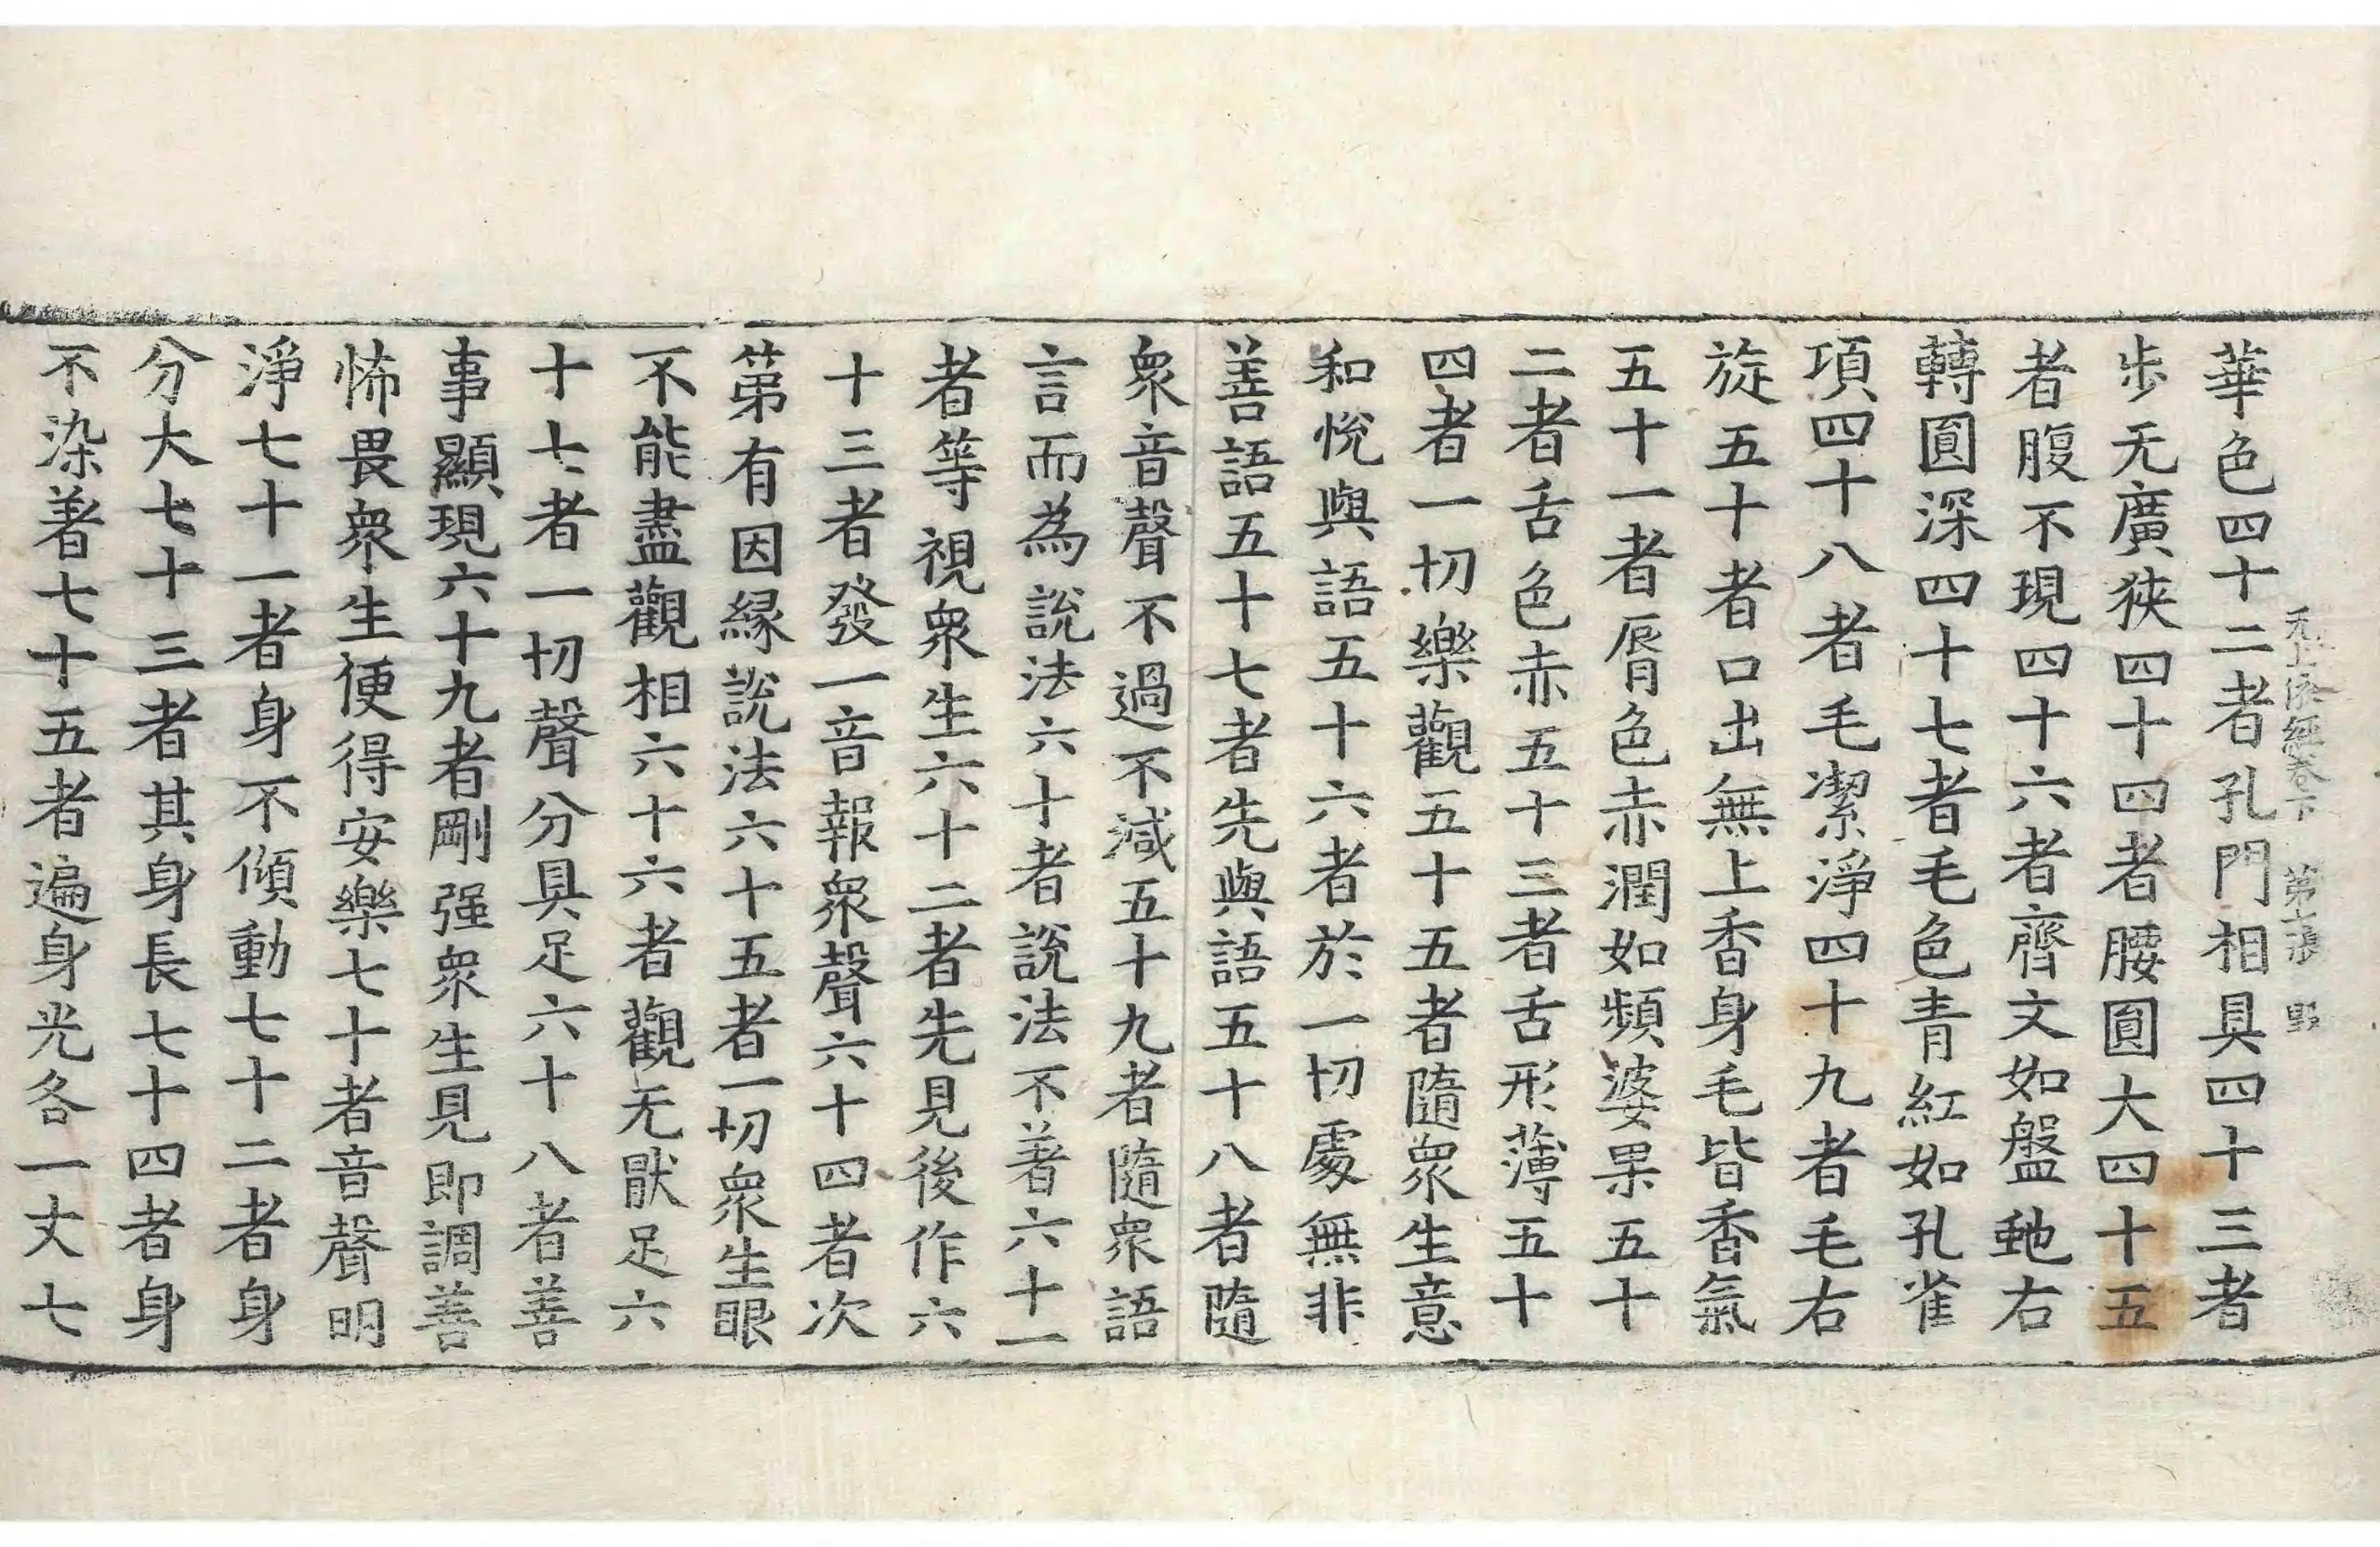 无上依經卷下 第七張 野
華色四十二者孔門相具四十三者
步无廣狹四十四者腰圓大四十五
者腹不現四十六者齊文如盤虵右
轉圓深四十七者毛色青紅如孔雀
項四十八者毛潔淨四十九者毛右
旋五十者口出無上香身毛皆香氣
五十一者脣色赤潤如頻婆果五十
二者舌色赤五十三者舌形薄五十
四者一切樂觀五十五者隨衆生意
和悅與語五十六者於一切處無非
善語五十七者先與語五十八者隨
衆音聲不過不減五十九者隨衆語
言而為說法六十者說法不著六十一
者等視衆生六十二者先見後作六
十三者發一音報衆聲六十四者次
第有因緣說法六十五者一切衆生眼
不能盡觀相六十六者觀无猒足六
十七者一切聲分具足六十八者善
事顯現六十九者剛强衆生見即調善
怖畏衆生便得安樂七十者音聲明
淨七十一者身不傾動七十二者身
分大七十三者其身長七十四者身
不染著七十五者遍身光各一丈七